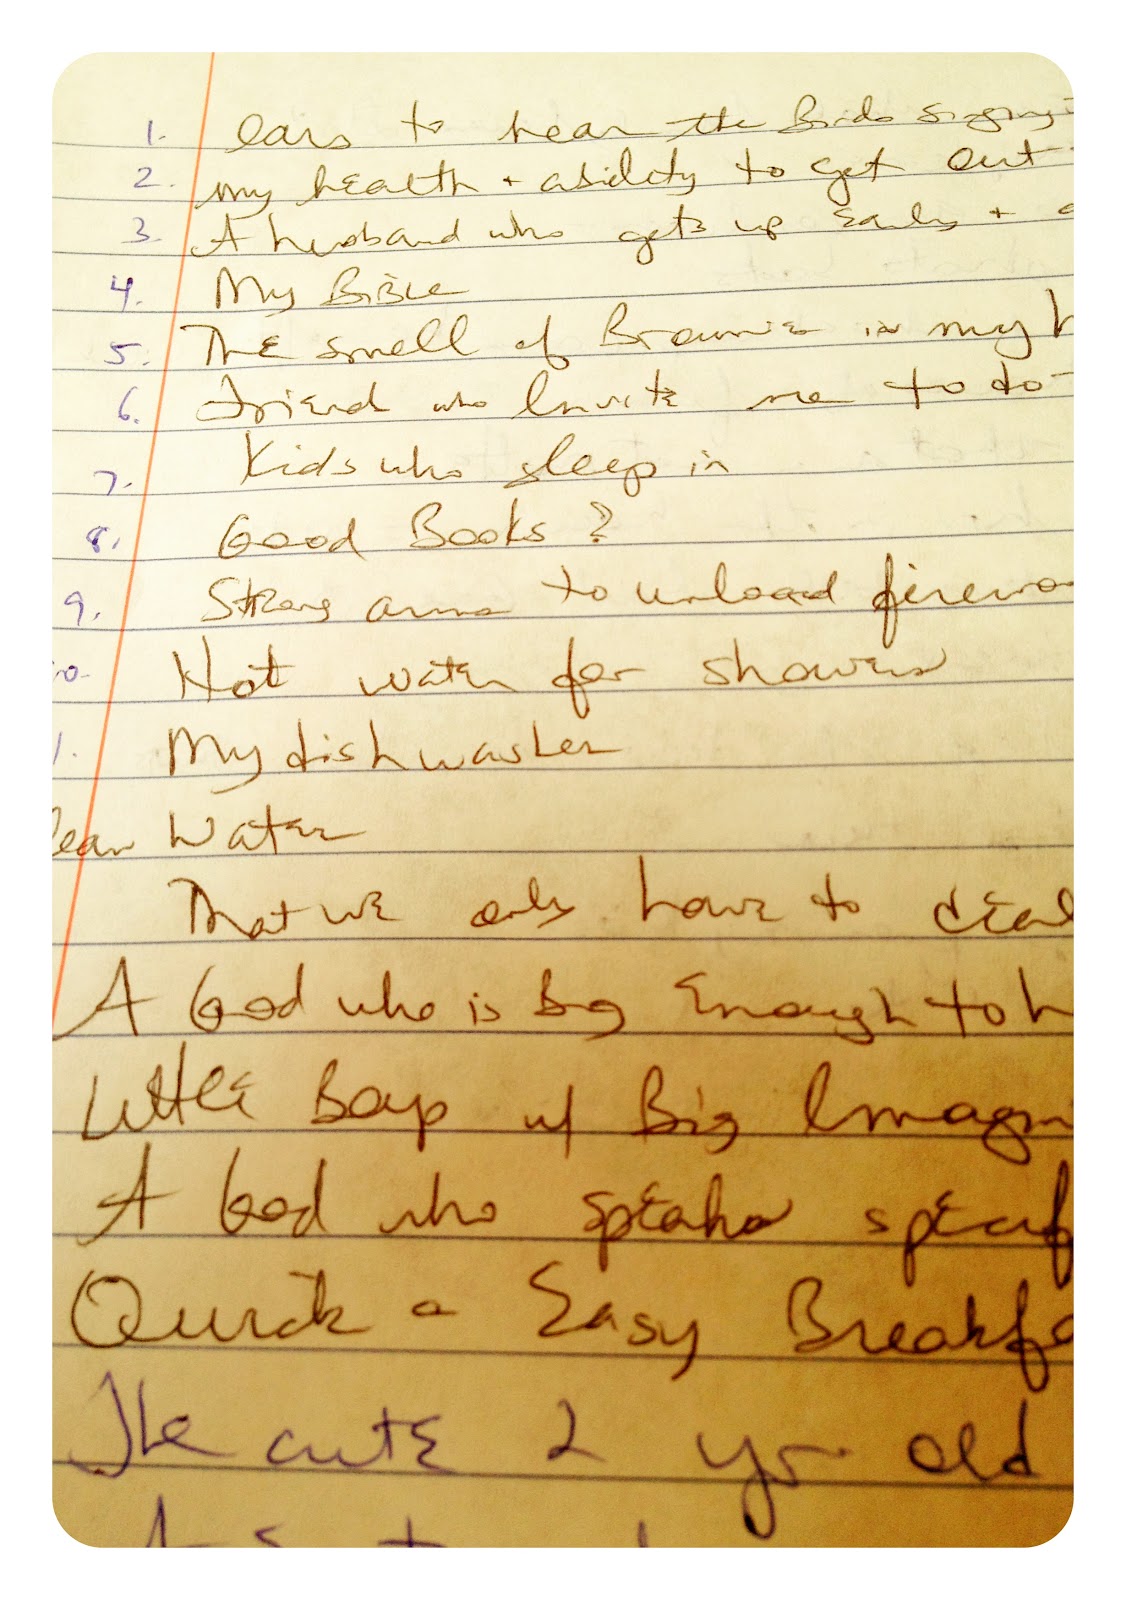 1. ears to hear the Birds singing
2. my health + ability to get out
3. A husband who gets up early +
4. My Bible
5. The smell of Brownie in my
6. Friend who Invite me to do
7. Kids who sleep in
8. Good Books?
9. Strong arms to unload firewo
10. Hot water for showers
My dishwasher
lean Water
That we only have to deal
A God who is Big Enough to h
Little Boys w/ Big Imagin
A God who speaks specif
Quick + Easy Breakfa
The cute 2 yr old